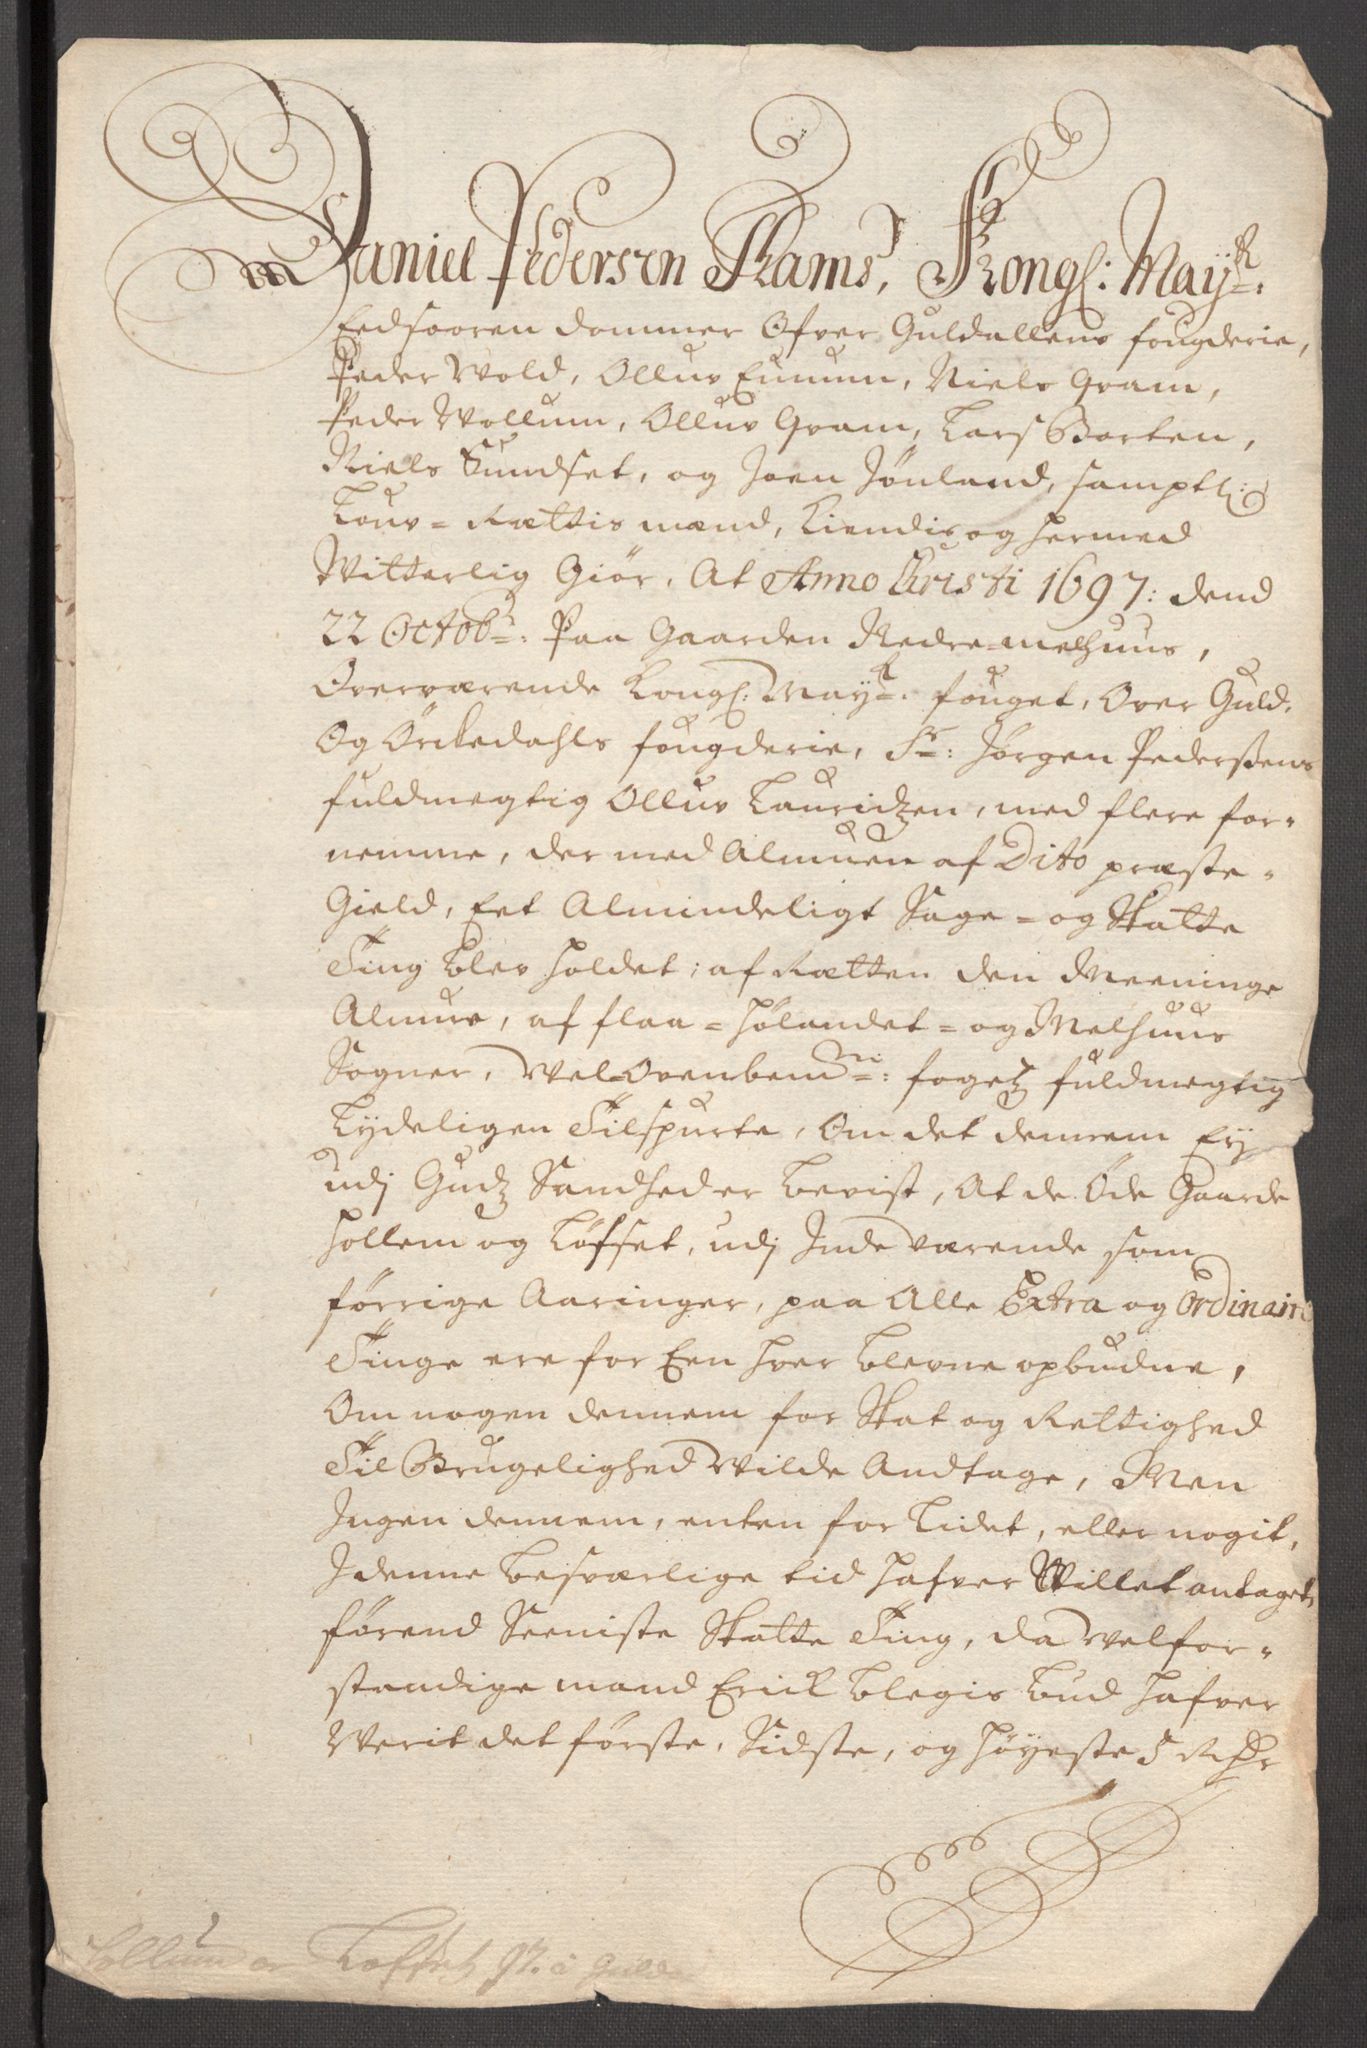 Daniel Pedersen Rams, Kongl: Mayt:
Eedsooren dommer Ofver Guldallens fougderie,
Peder Wold, Olluv Eunum, Niels Gram,
Peder Wollum, Olluv Gram, Lars Borten,
Niels Sundset, og Joen Jönland, samptl:
Louv-Rættis mænd, Kiendis og hermed
Witterlig Giör, At Anno Christi 1697: dend
22 Octobr: Paa Gaarden Nedre-melhuus,
Overværende Kongl: Mayt: fouget, Over Guld,
Og Örckedahls fougderie, Sr: Jörgen Pederssens
fuldmegtig Olluv Lauridzen, med flere for-
nemme, der med Almuen af Dito præste-
Gield, Eet Almindeligt Sage- og Skatte
Ting blev holdet; af Rætten den Meeninge
Almuv, af flaa- Hölandet- og Melhuus
Sogner, Wel-Ovenbemte: fogetz fuldmegtig
Lydeligen Tilspurte, Om det dennem Eij
udj Gudz Sandhed er bevist, At de Öde Gaarde
Hollem og Löfset, udj Inde værende som
förrige Aaringer, paa Alle Extra og Ordinaire
Tinge ere for Een hver blevne opbudne,
Om nogen dennem for Skat og Rettighed
Til Brugelighed Wilde Andtage, Men
Ingen dennem, enten for Lidet, eller nogit,
I denne besværlige tid hafver Willet antaget,
förend Seeniste Skatte Ting, da Welfor-
standige mand Erick Blegis bud hafver
Werit det förste, Sidste, og Höyeste 5 Rdr
Hollum og Löfset 97. i Guld